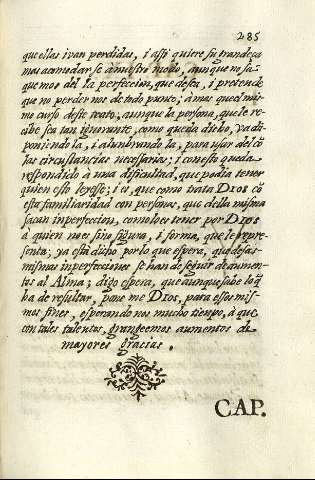 285
que ellas ivan perdidas, i assi quiere su grandeça
mas acomodarse à nuestro modo, aunque no sa-
quemos del la perfeccion, que desea, i pretende
que no perdernos de todo punto; à mas que el mis-
mo curso deste trato, aunque la persona, que le re-
cibe sea tan ignorante, como queda dicho, va dis-
poniendola, i alumbrandola, para usar del cõ
las circunstancias necessarias; i con esto queda
respondido à una dificultad, que podia tener
quien esto leyesse; i es, que como trata DIOS cõ
esta familiaridad con personas, que della misma
sacan inperfeccion, como lo es tener por DIOS
à quien no es sino figura, i forma, que le repre-
senta; ya està dicho por lo que espera, que destas
mismas inperfecciones se han de seguir de aumen-
tos al Alma; digo espera, que aunque sabe lo q̃
ha de resultar, pone me DIOS, para essos mis-
mos fines, esperando nos mucho tiempo, à que
con tales talentos, grangeemos aumentos de
mayores gracias.
CAP.